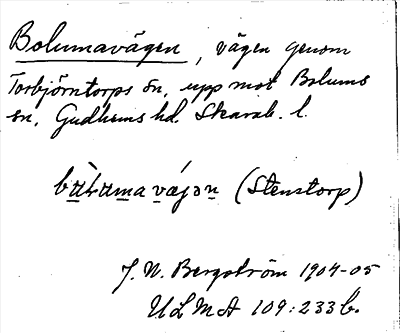 Bolumavägen, vägen genom
Torbjörntorps sn. upp mot Bolums
sn, Gudhems hd. Skarab. l.
(Stenstorp)
J. N. Bergström 1904-05
ULMA 109:233b.